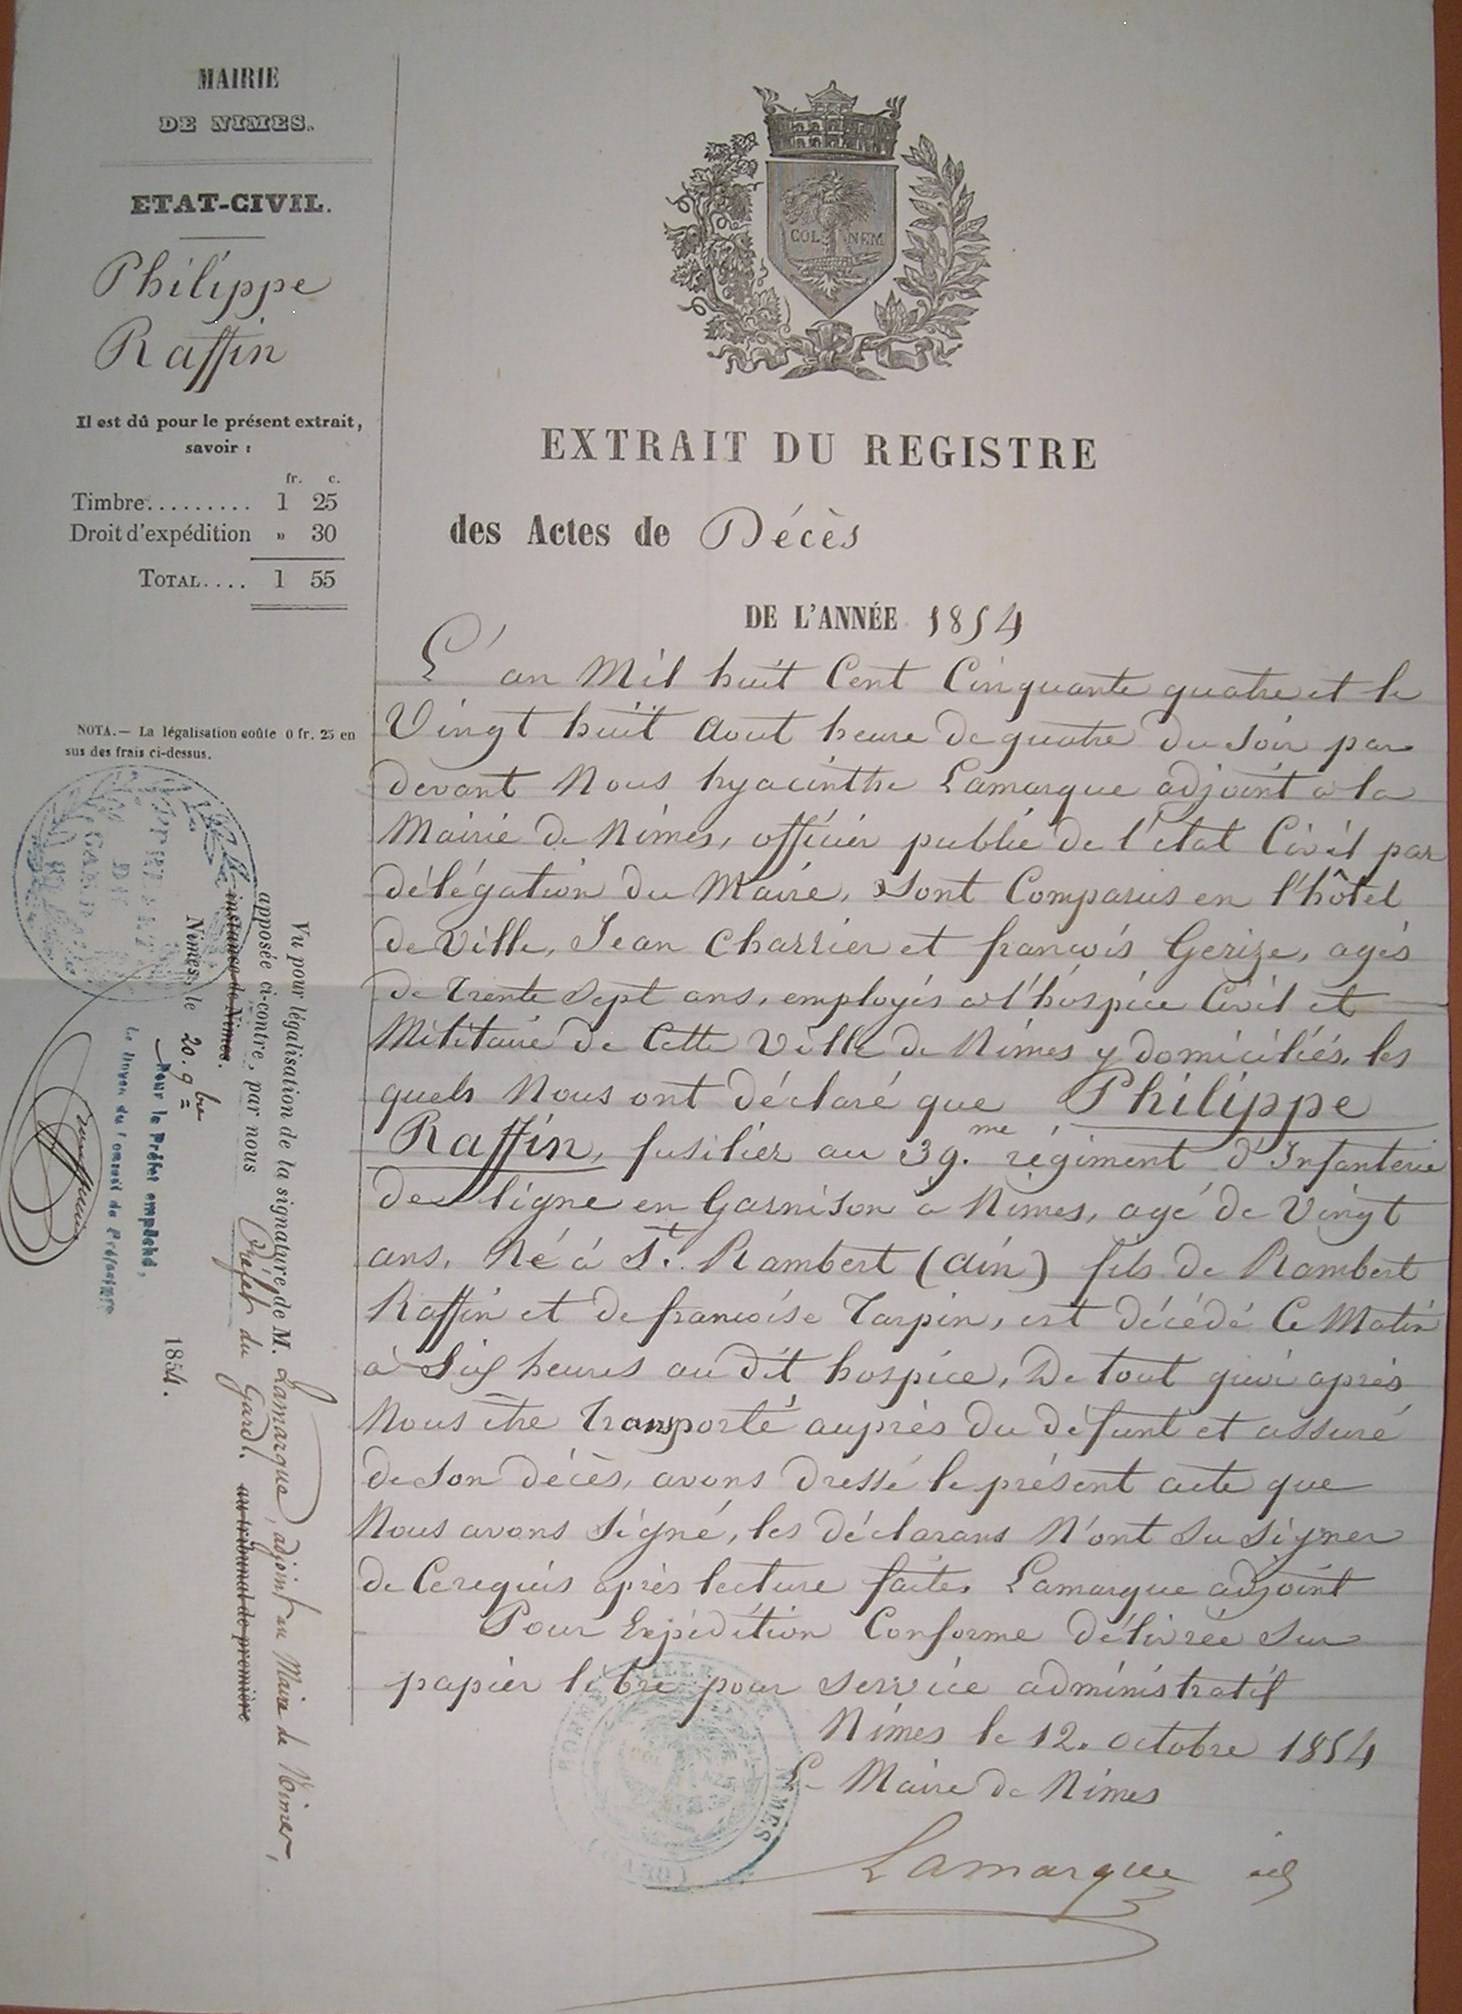 MAIRIE
DE NIMES.
ETAT-CIVIL.
Philippe
Raffin
Il est dû pour le présent extrait,
savoir :
fr. c.
Timbre......... 1 25
Droit d'expédition » 30
TOTAL.... 1 55
NOTA.— La légalisation coûte 0 fr. 25 en
sus des frais ci-dessus.
Vu pour légalisation de la signature de M. Lamarque, adjoint au Maire de Nimes,
apposée ci-contre, par nous Préfet du Gard. au tribunal de première
instance de Nimes.
Nimes, le 20. 9bre 1854.
Pour le Préfet empêché,
Le Doyen du Conseil de Préfecture
DU
GARD
COL NEM
EXTRAIT DU REGISTRE
des Actes de Décès
DE L'ANNÉE 1854
L'an Mil huit Cent Cinquante quatre et le
Vingt huit Aout heure de quatre du Soir par
devant Nous hyacinthe Lamarque adjoint a la
Mairie de Nimes, officier public de l'état Civil par
délégation du Maire, Sont Comparus en l'hôtel
de Ville, Jean Charrier et françois Gerize, agés
de Trente Sept ans, employés a l'hospice Civil et
Militaire de Cette Ville de Nimes y domiciliés, les
quels Nous ont déclaré que Philippe
Raffin, fusilier au 39.me régiment d'Infanterie
de ligne en Garnison à Nimes, agé de Vingt
ans, Né à St. Rambert (Ain) fils de Rambert
Raffin et de françoise Tarpin, est décédé Ce Matin
à Six heures au dit hospice, De tout quoi après
Nous être Transporté auprès du défunt et assuré
de Son décès, avons dressé le présent acte que
Nous avons Signé, les déclarans N'ont Su Signer
de Ce requis après lecture faite. Lamarque adjoint
Pour Expédition Conforme délivrée Sur
papier libre pour Service administratif
Nimes le 12. octobre 1854
Le Maire de Nimes
Lamarque